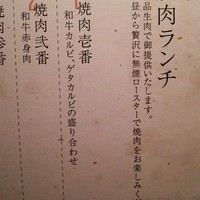 肉ランチ
品生肉で御提供いたします。
昼から贅沢に無煙ロースターで焼肉をお楽しみく
焼肉壱番
和牛カルビ、ゲタカルビの盛り合わせ
焼肉弐番
和牛赤身肉
焼肉参番